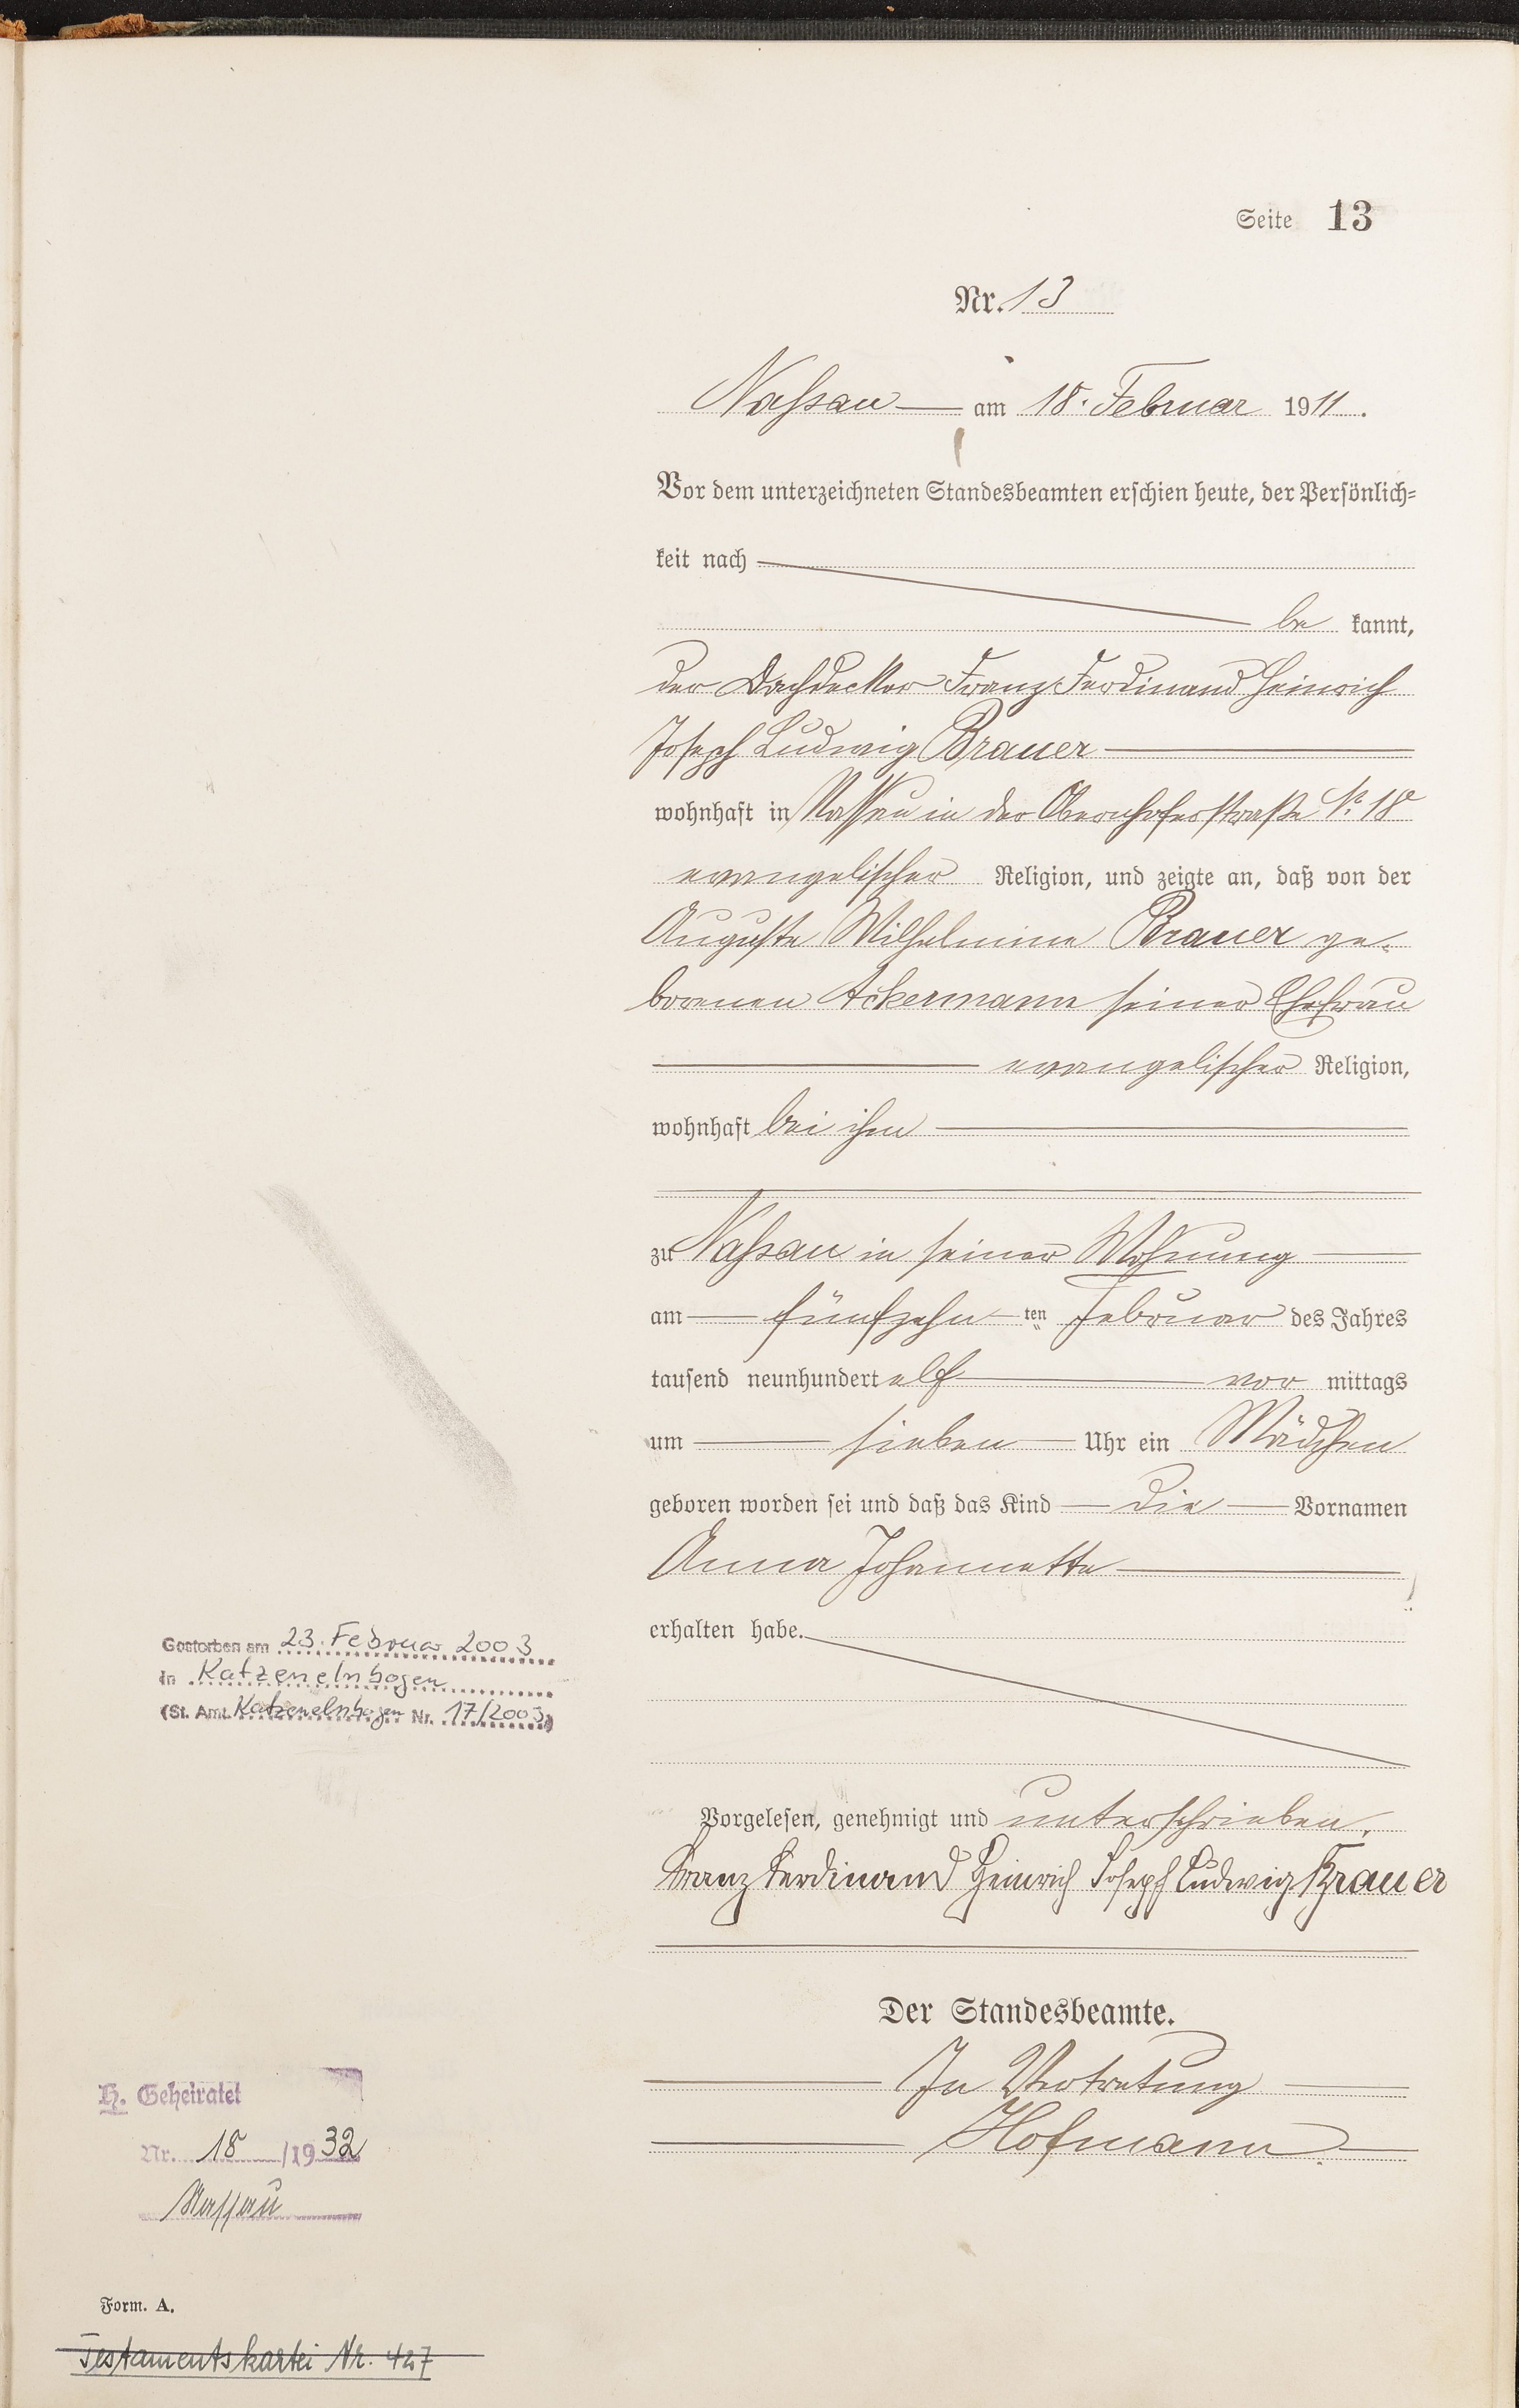 Seite 13
Nr. 13
Nassau am 18. Februar 1911.
Vor dem unterzeichneten Standesbeamten erschien heute, der Persönlich-
keit nach
be kannt,
der Dachdecker Franz Ferdinand Heinrich
Joseph Ludwig Brauer
wohnhaft in Nassau in der Obernhoferstraße No 18
evangelischer Religion, und zeigte an, daß von der
Auguste Wilhelmine Brauer ge-
borenen Ackermann seiner Ehefrau
evangelischer Religion,
wohnhaft bei ihm
zu Nassau in seiner Wohnung
am fünfzehn ten Februar des Jahres
tausend neunhundert elf vor mittags
um sieben Uhr ein Mädchen
geboren worden sei und daß das Kind die Vornamen
Anna Johannette
erhalten habe.
Vorgelesen, genehmigt und unterschrieben.
Franz Ferdinand Heinrich Joseph Ludwig Brauer
Der Standesbeamte.
In Vertretung
Hofmann.
Gestorben am 23. Februar 2003
in Katzenelnbogen
(St. Amt. Katzenelnbogen Nr. 17/2003)
H. Geheiratet
Nr. 18 /1932
Nassau
Form. A.
Testamentskartei Nr. 427